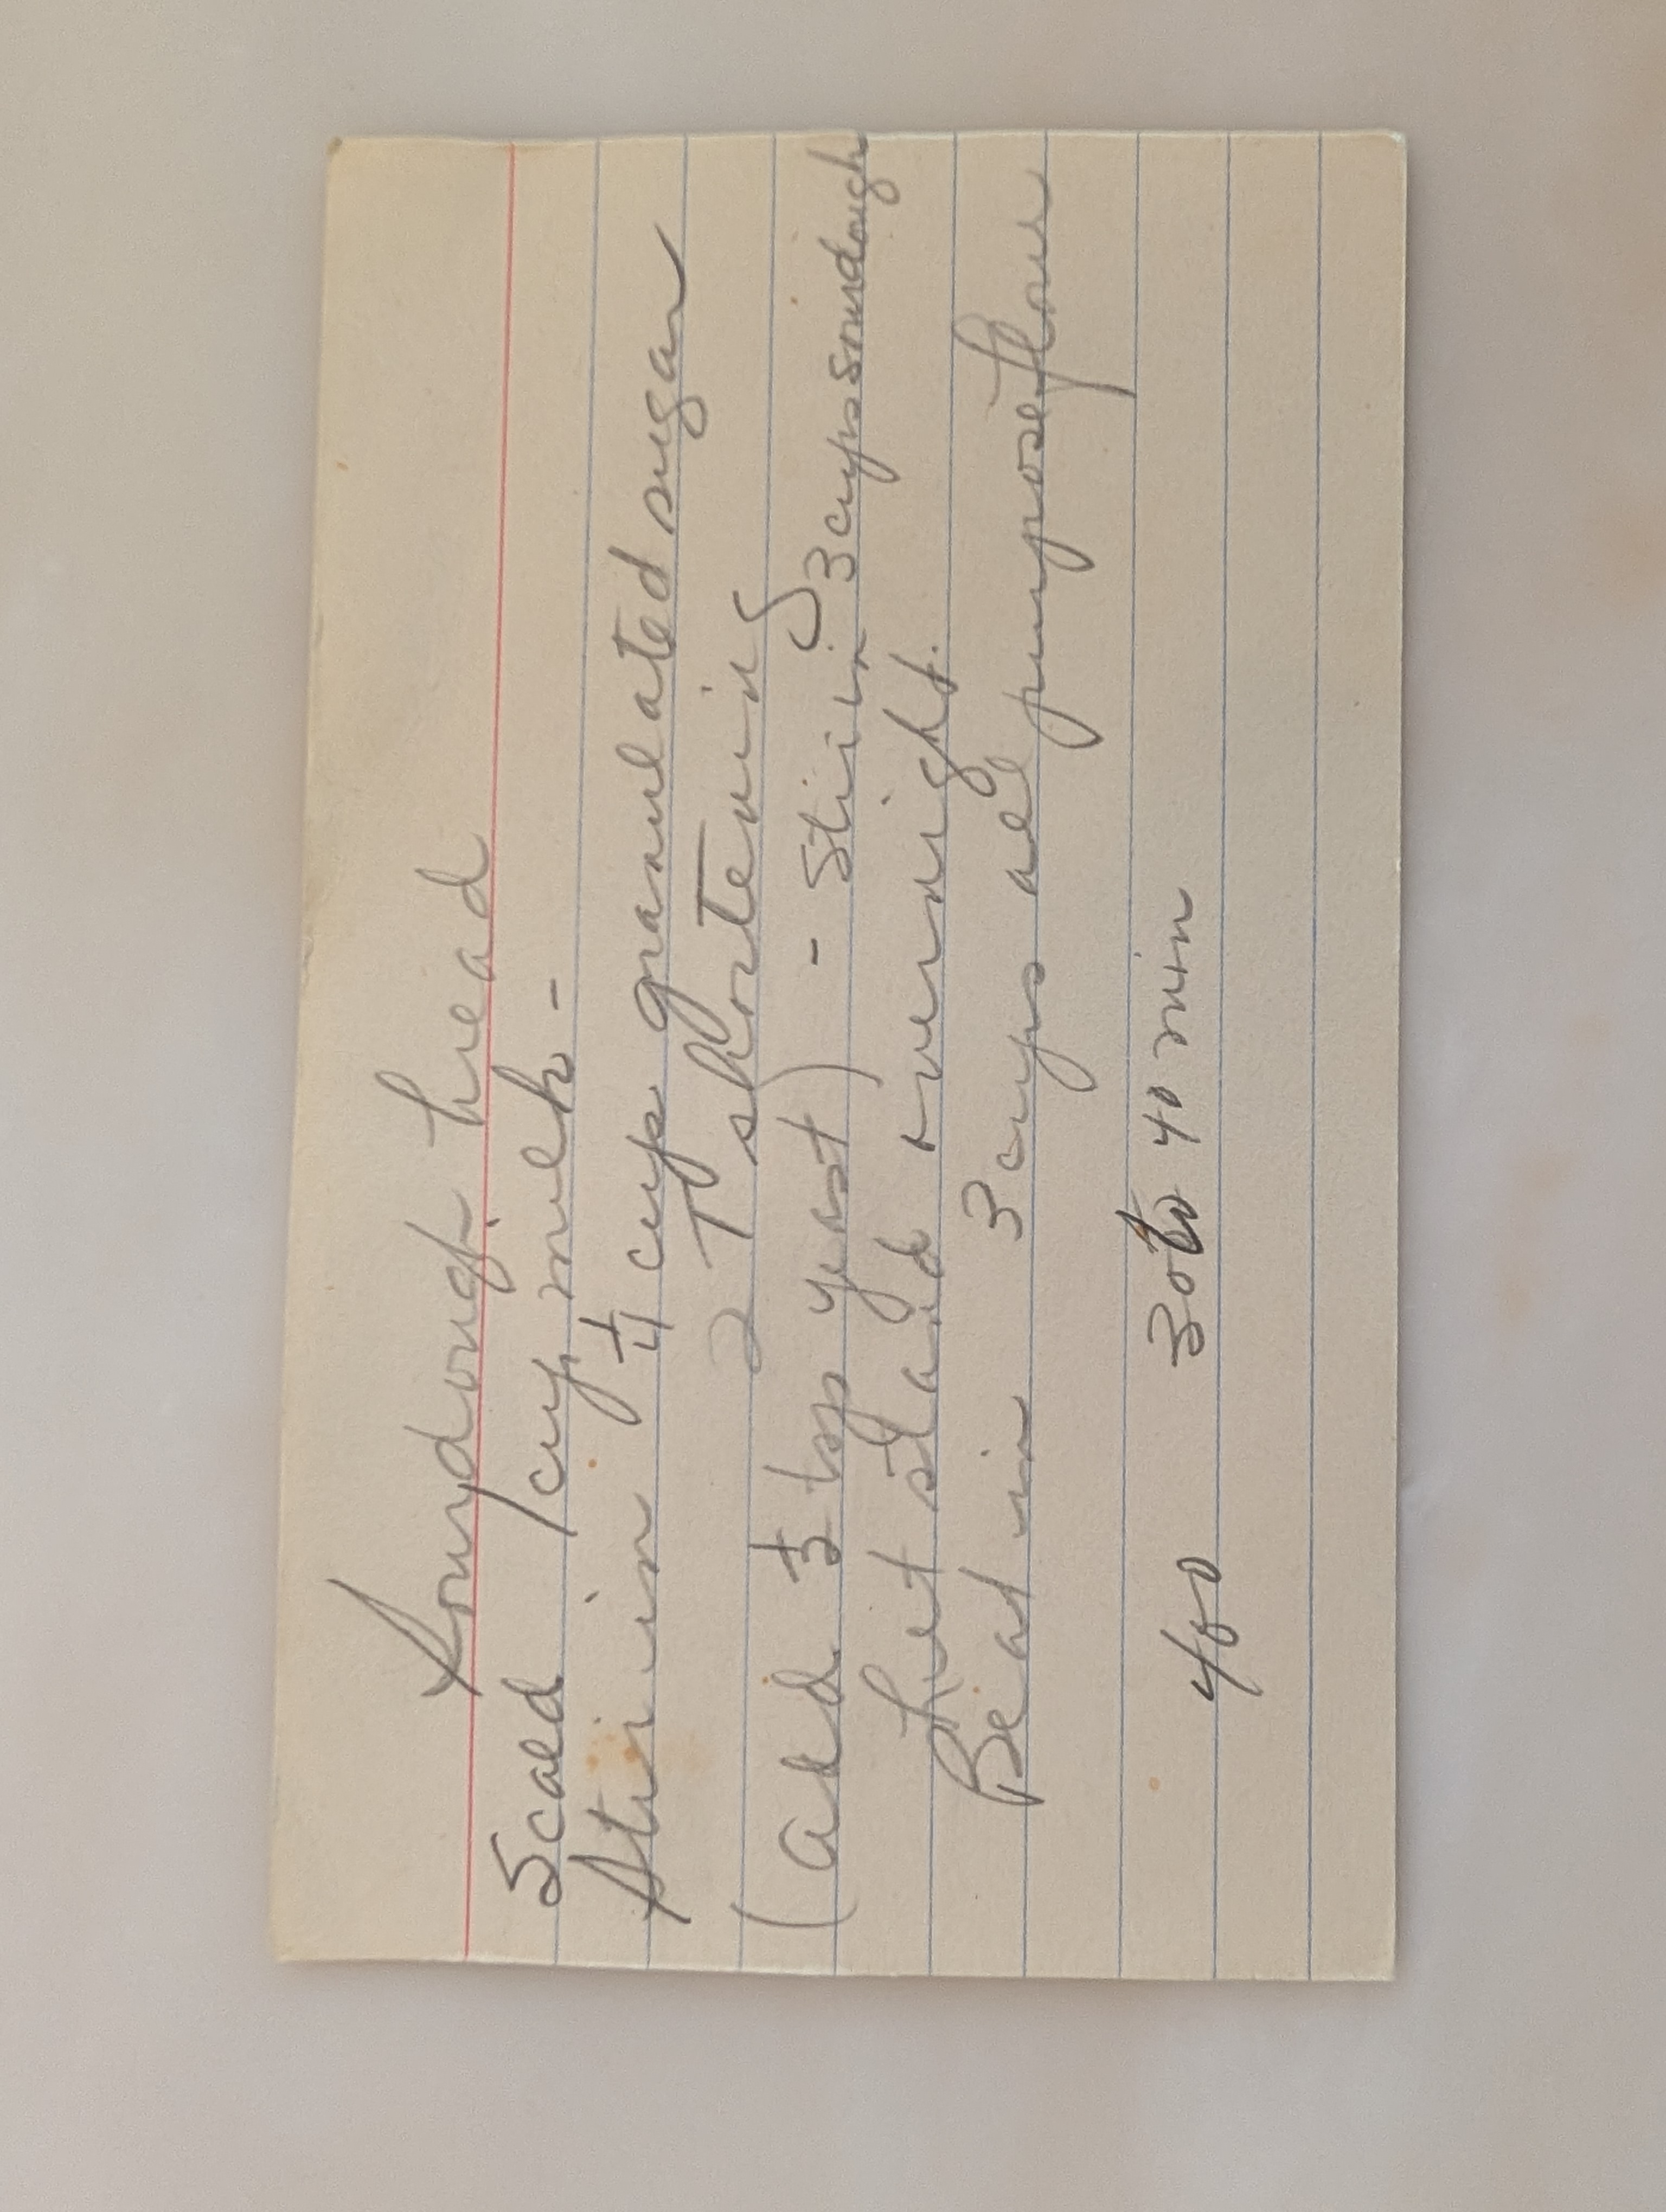 Sourdough bread
Scald 1 cup milk -
Stir in 1/4 cup granulated sugar
2 T shortening
(add 1/2 tsp yeast) - Stir in 3 cups sourdough
Let stand overnight.
Beat in 3 cups all purpose flour
400 30 to 40 min